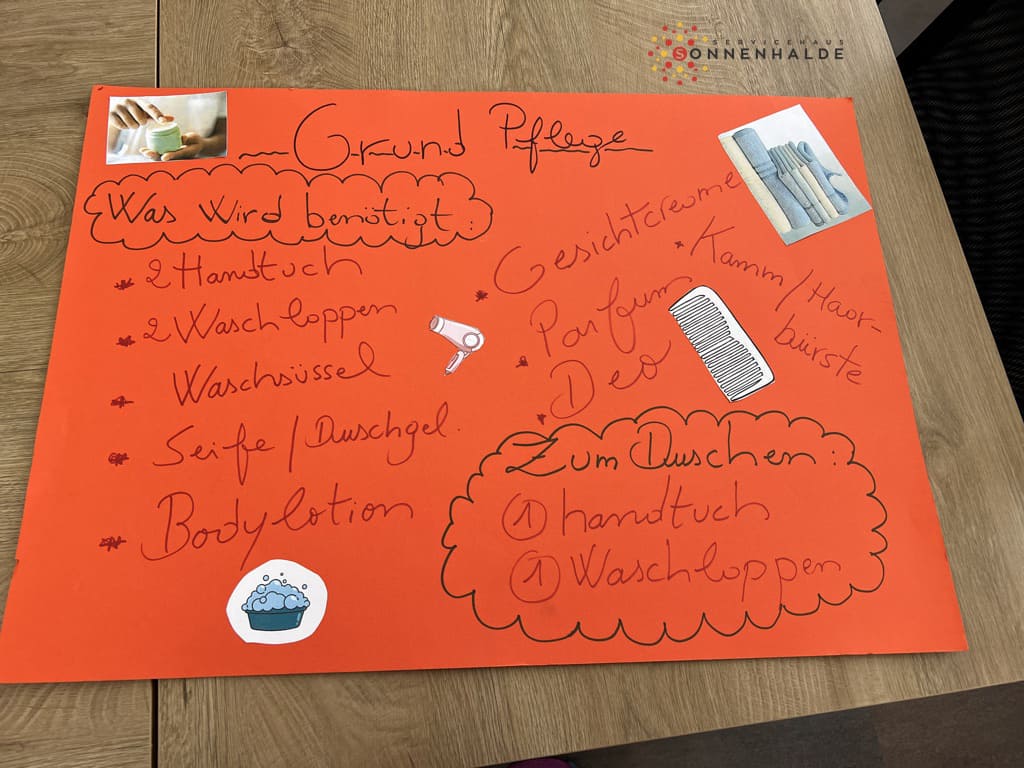 SERVICEHAUS
SONNENHALDE
Grund Pflege
Was wird benötigt:
* 2 Handtuch
* 2 Waschloppen
* Waschsüssel
* Seife / Duschgel.
* Bodylotion
* Gesichtcreome
* Parfum
* Deo
* Kamm / Haor-
bürste
Zum Duschen:
① handtuch
① Waschloppen